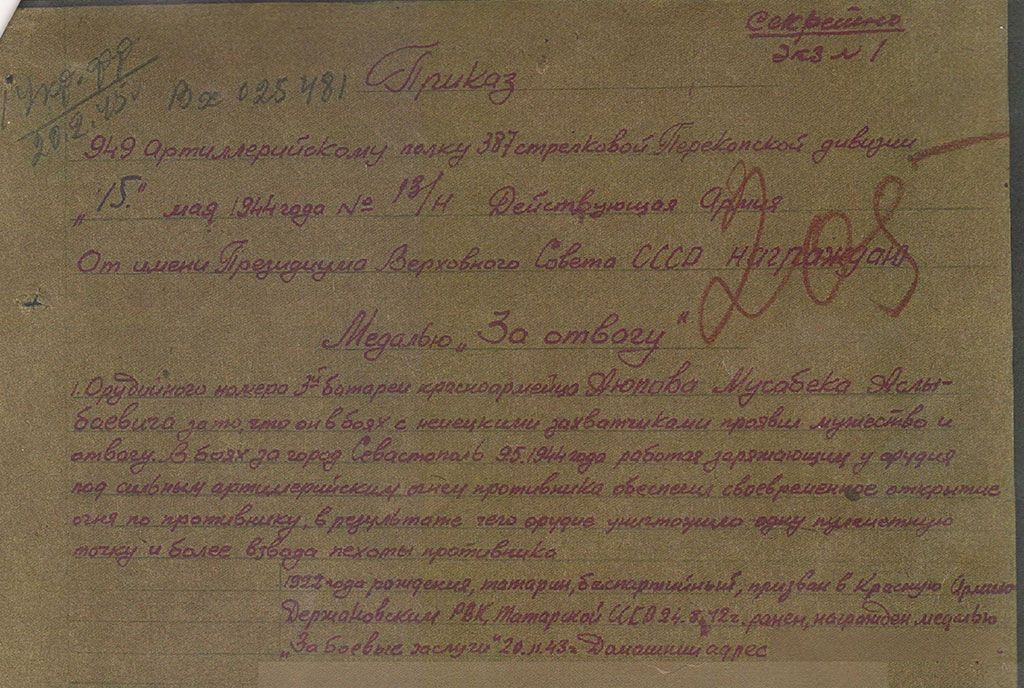 Секретно
Экз № 1
Вх 025481
20.2.45
Приказ
949 Артиллерийскому полку 387 стрелковой Перекопской дивизии
"15." мая 1944 года № 13/н Действующая Армия
205
От имени Президиума Верховного Совета СССР награждаю
Медалью „За отвагу"
1. Орудийного номера 3й батареи красноармейца Аюпова Мусабека Аслы-
баевича за то, что он в боях с немецкими захватчиками проявил мужество и
отвагу. В боях за город Севастополь 9.5.1944 года работая заряжающим у орудия
под сильным артиллерийским огнем противника обеспечил своевременное открытие
огня по противнику, в результате чего орудие уничтожило одну пулеметную
точку и более взвода пехоты противника
1922 года рождения, татарин, беспартийный, призван в Красную Армию
РВК, Татарской ССР 24.8.42 г. ранен, награжден медалью
„За боевые заслуги" 20.11.43 г Домашний адрес